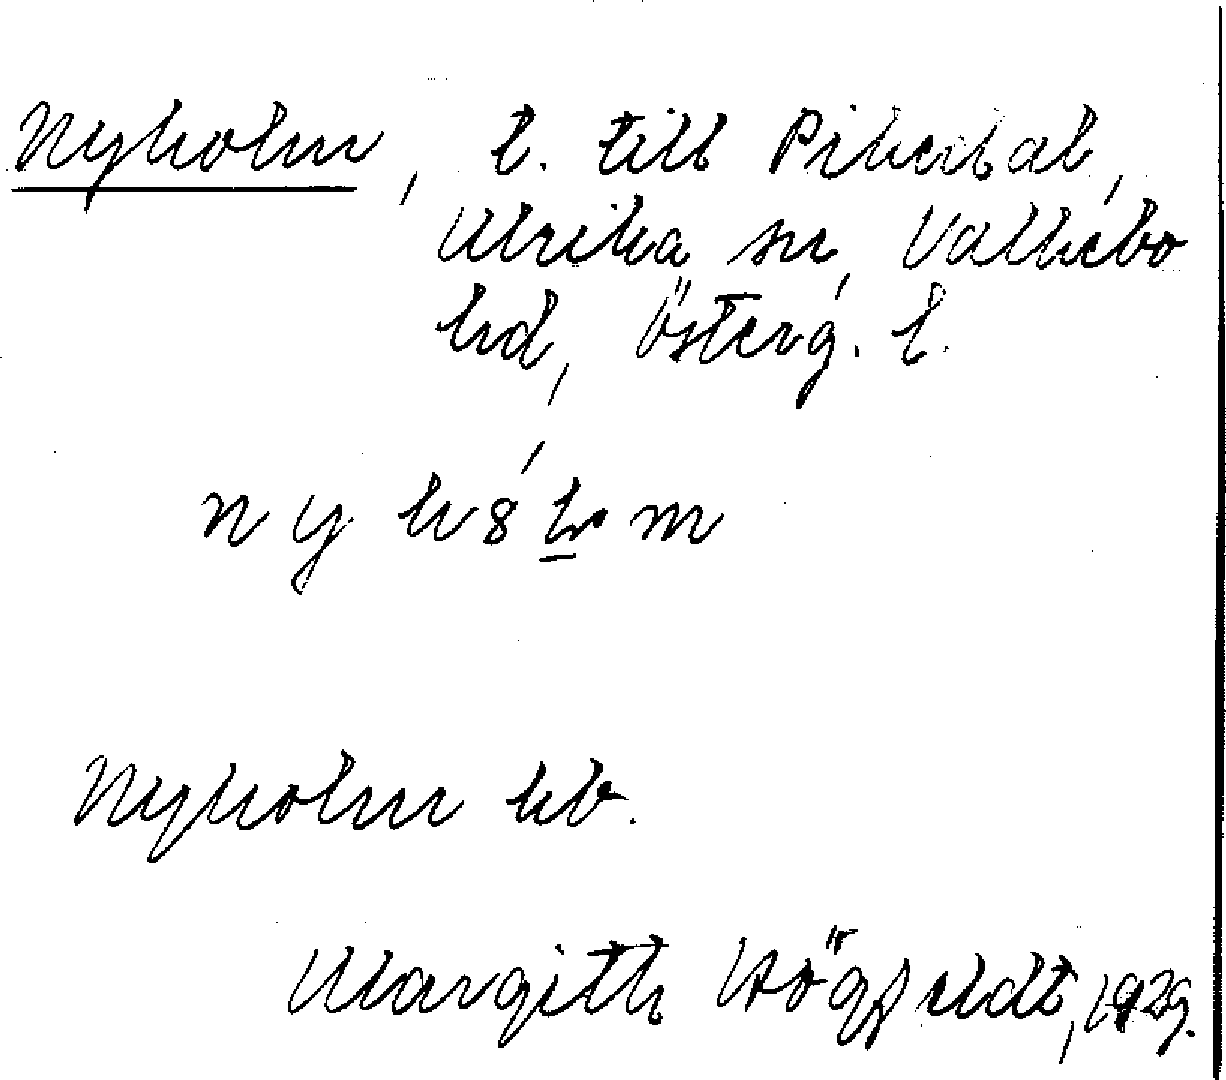 Nyholm, t. till Pikedal,
Ulrika sn, Valkebo
hd, Österg. l.
nyhólm
Nyholm kb.
Margith Högfeldt, 1929.